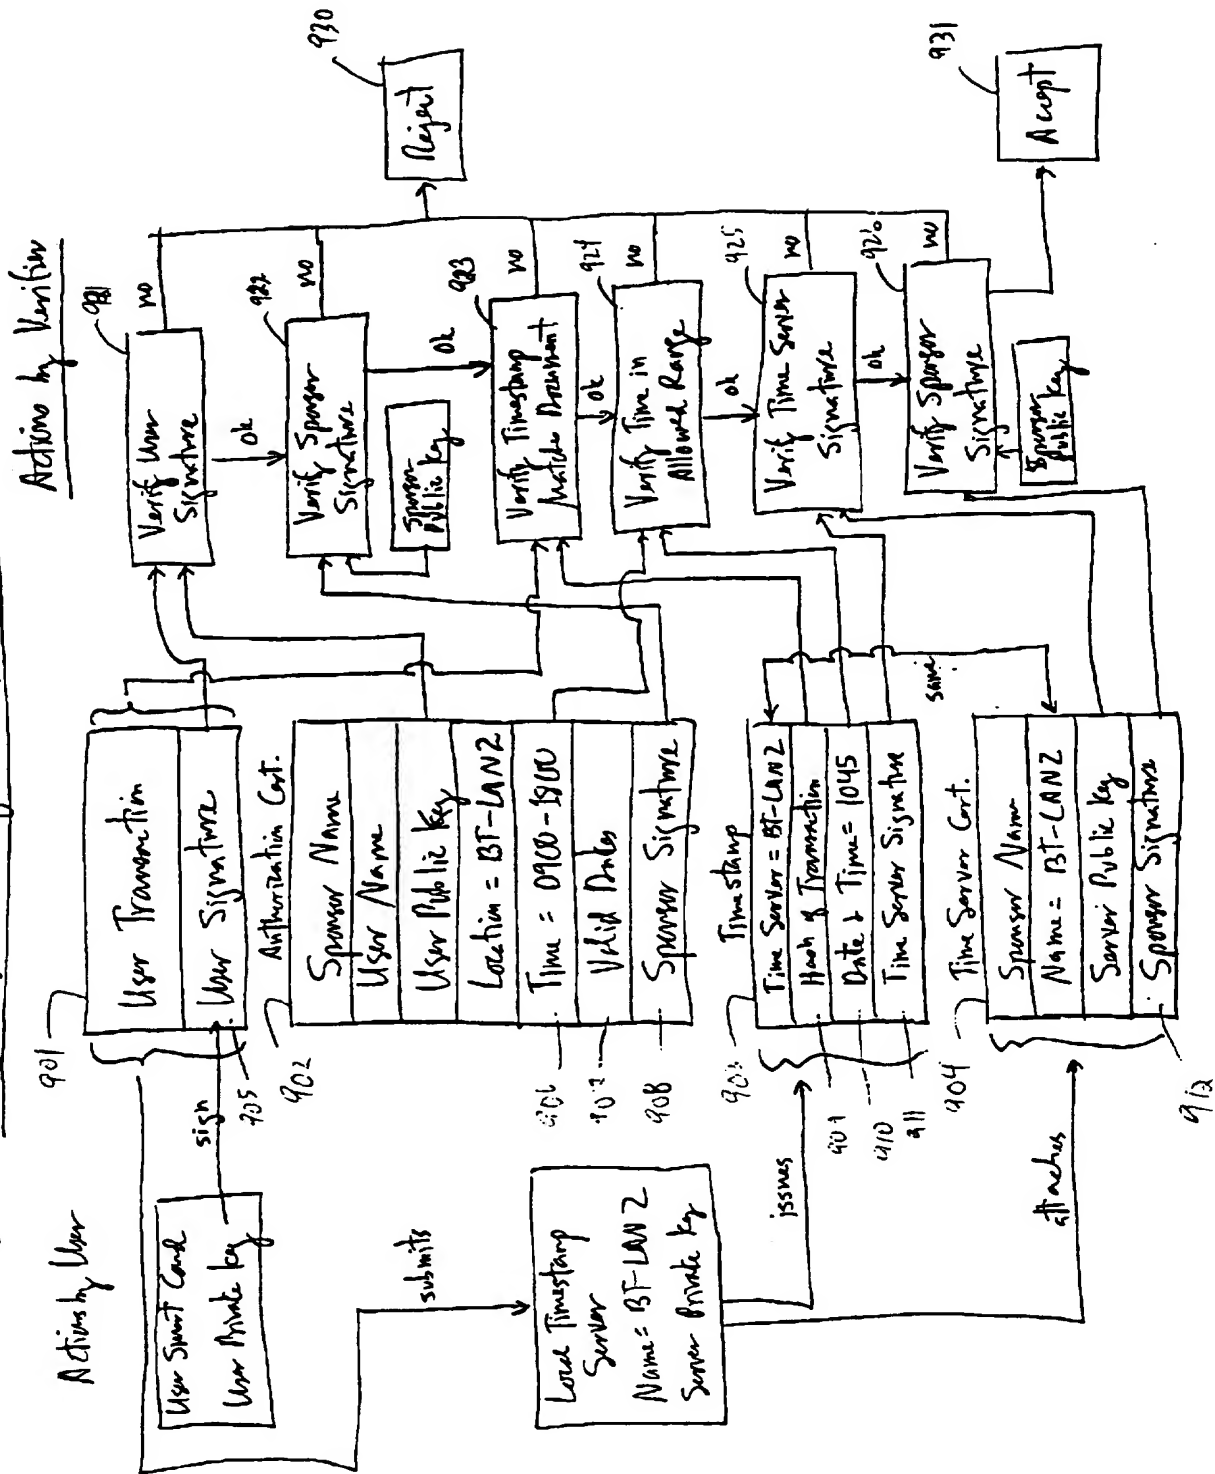 Actions by User
User Smart Card
User Private Key
sign
submits
Local Timestamp
Server
Name = BT-LAN2
Server Private Key
issues
attaches
901
User Transaction
User Signature
905
902
Authorization Cert.
Sponsor Name
User Name
User Public Key
Location = BT-LAN2
Time = 0900-1800
Valid Dates
Sponsor Signature
908
Timestamp
Time Server = BT-LAN2
Hash of Transaction
Date & Time = 1045
Time Server Signature
910
911
904
Time Server Cert.
Sponsor Name
Name = BT-LAN2
Server Public Key
Sponsor Signature
912
same
Actions by Verifier
Verify User
Signature
no
ok
922
Verify Sponsor
Signature
no
Sponsor
Public Key
ok
923
Verify Timestamp
Matches Document
no
ok
924
Verify Time in
Allowed Range
no
ok
925
Verify Time Server
Signature
no
ok
926
Verify Sponsor
Signature
no
Sponsor
Public Key
930
Reject
931
Accept